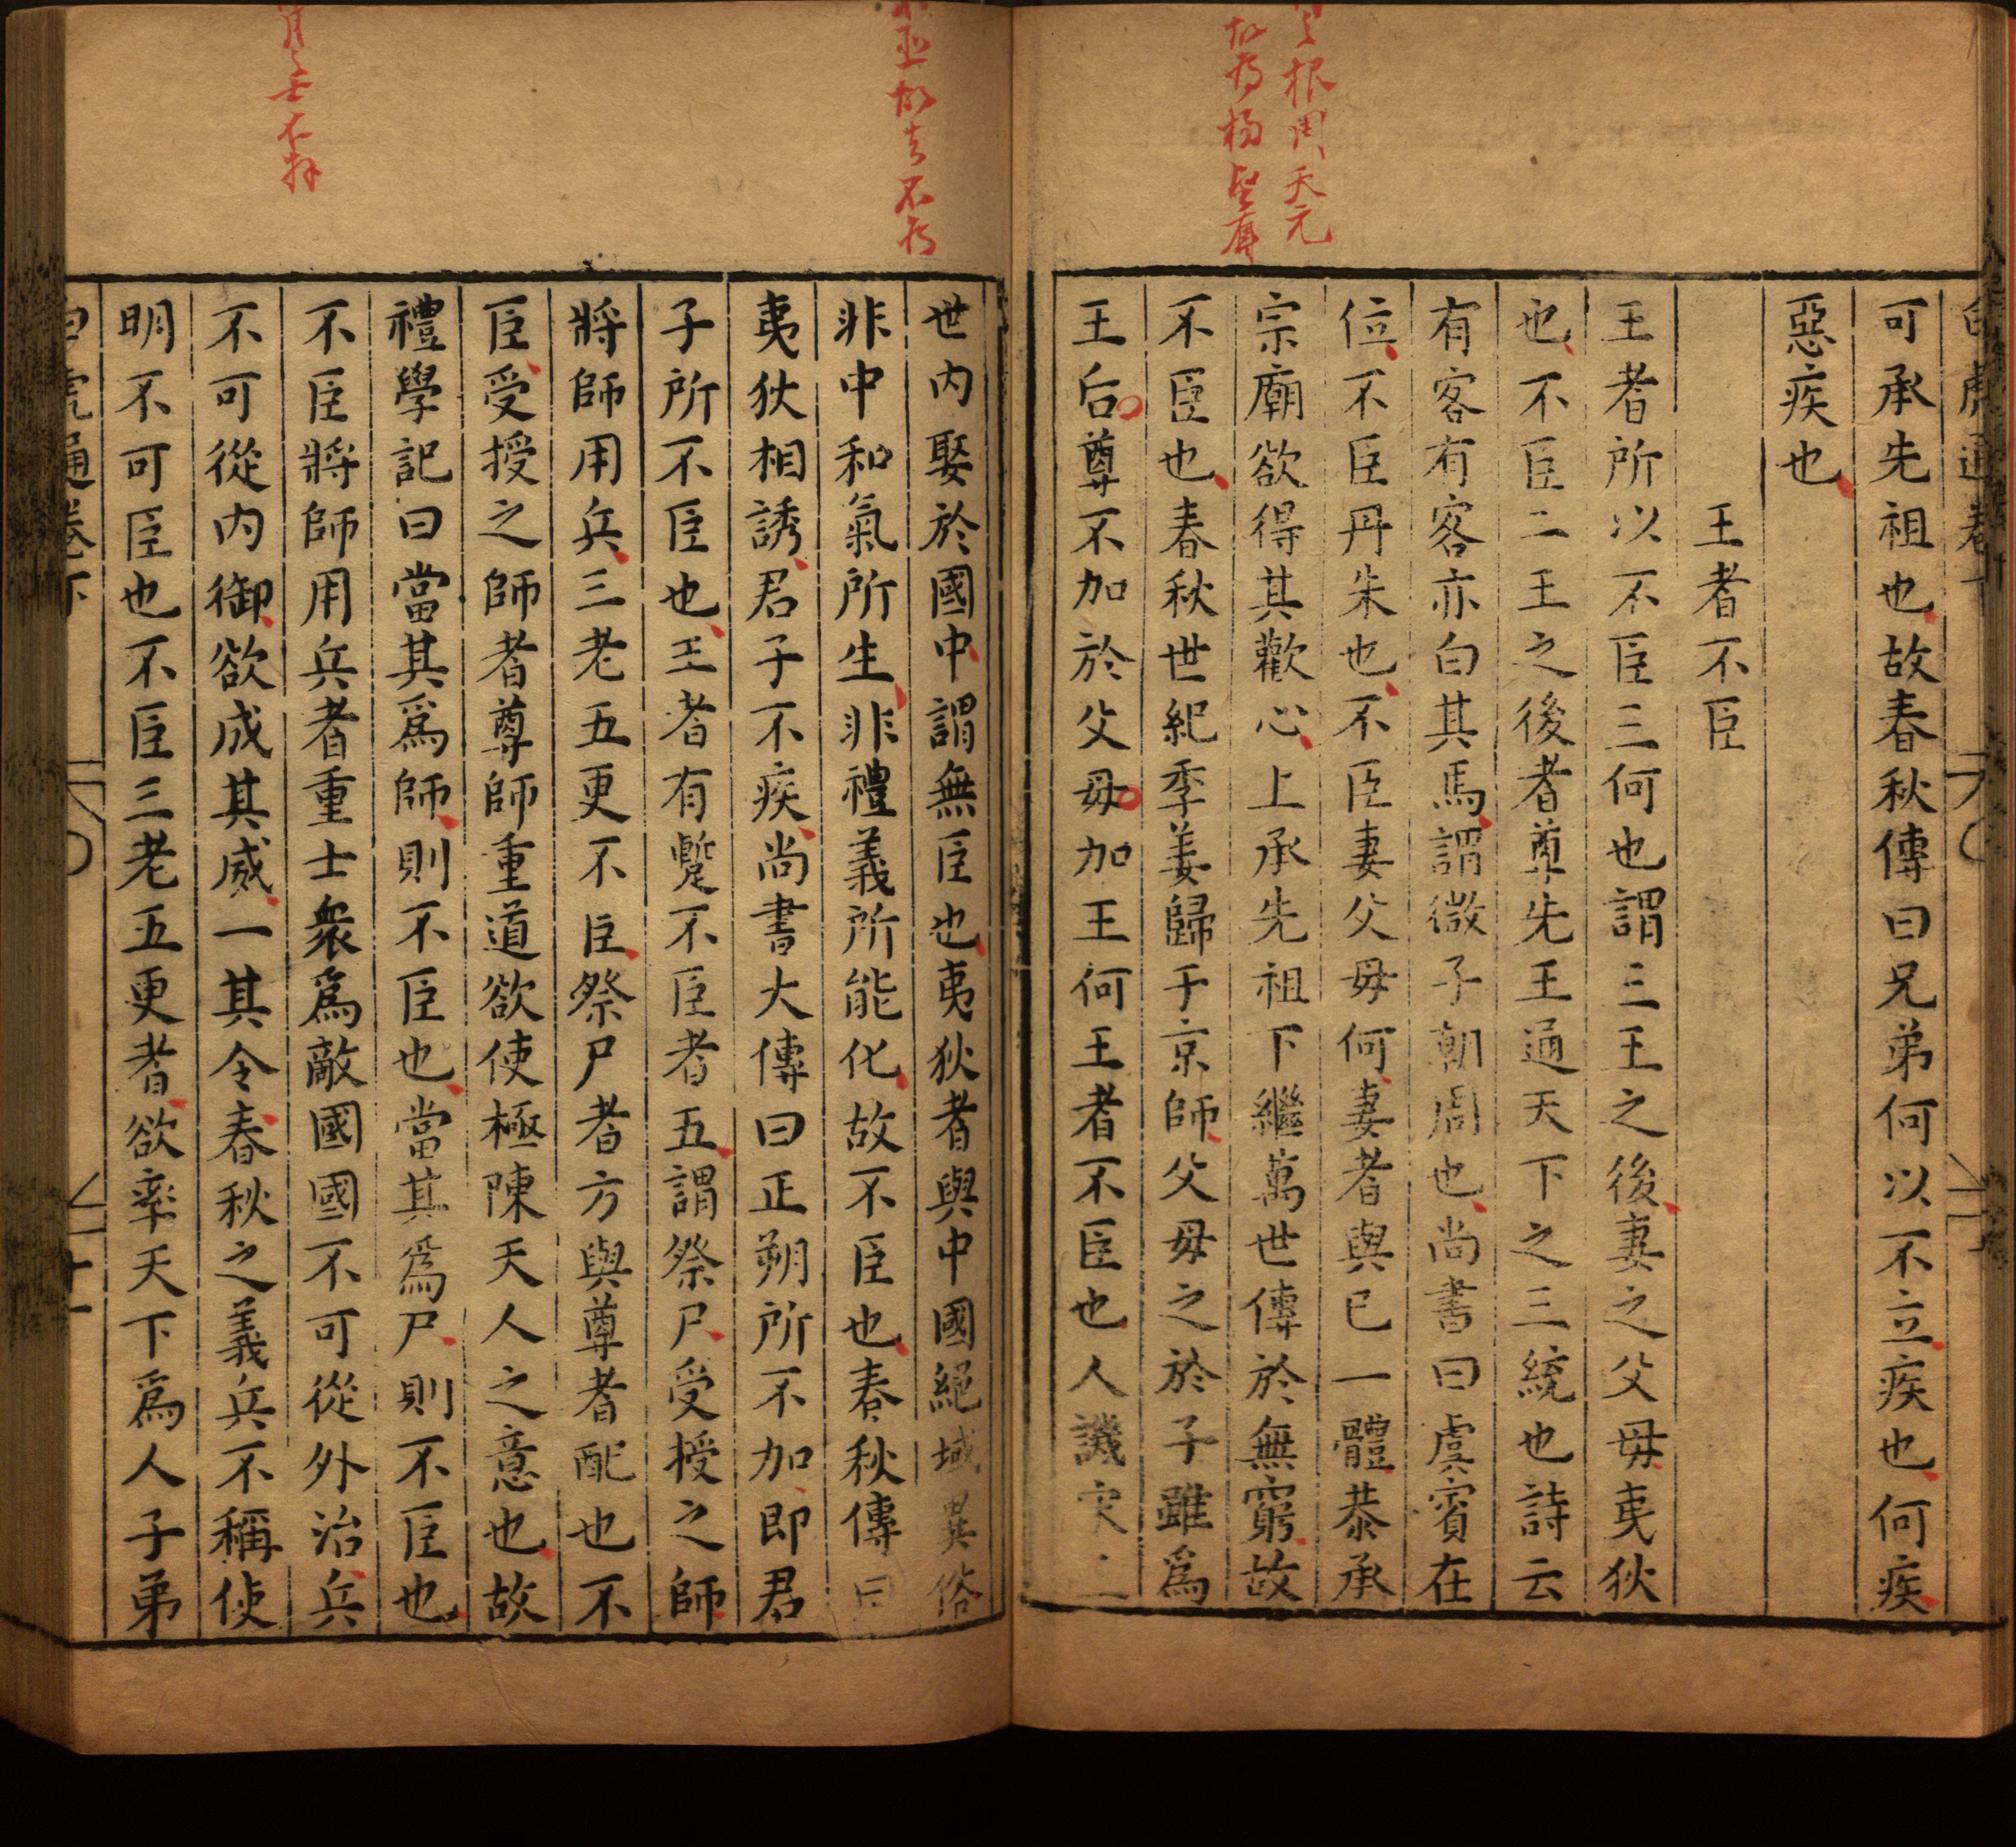 白虎通卷下
可承先祖也故春秋傳曰兄弟何以不立疾也何疾
惡疾也
王者不臣
王者所以不臣三何也謂三王之後妻之父母夷狄
也不臣二王之後者尊先王通天下之三統也詩云
有客有客亦白其馬謂微子朝周也尚書曰虞賓在
位不臣丹朱也不臣妻父母何妻者與已一體恭承
宗廟欲得其歡心上承先祖下繼萬世傳於無窮故
不臣也春秋世紀季姜歸于京師父母之於子雖爲
王后尊不加於父母加王何王者不臣也人譏宋
世内娶於國中謂無臣也夷狄者與中國絕域異俗
非中和氣所生非禮義所能化故不臣也春秋傳曰
夷狄相誘君子不疾尚書大傳曰正朔所不加即君
子所不臣也王者有蹔不臣者五謂祭尸受授之師
將師用兵三老五更不臣祭尸者方與尊者配也不
臣受授之師者尊師重道欲使極陳天人之意也故
禮學記曰當其爲師則不臣也當其爲尸則不臣也
不臣將師用兵者重士衆爲敵國國不可從外治兵
不可從内御欲成其威一其令春秋之義兵不稱使
明不可臣也不臣三老五更者欲率天下爲人子弟
白虎通卷下
十一
根周天元
故為楊堅
不為
不拜